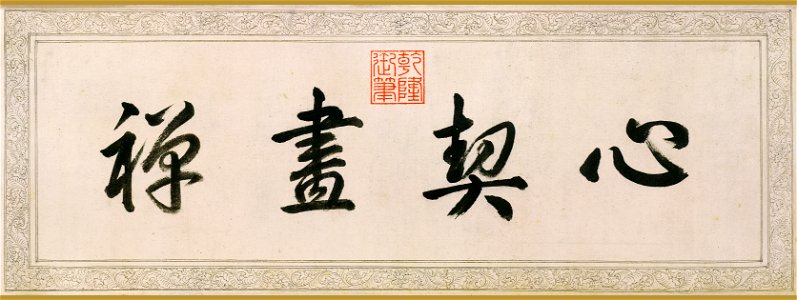 心契畫禪
乾隆御筆